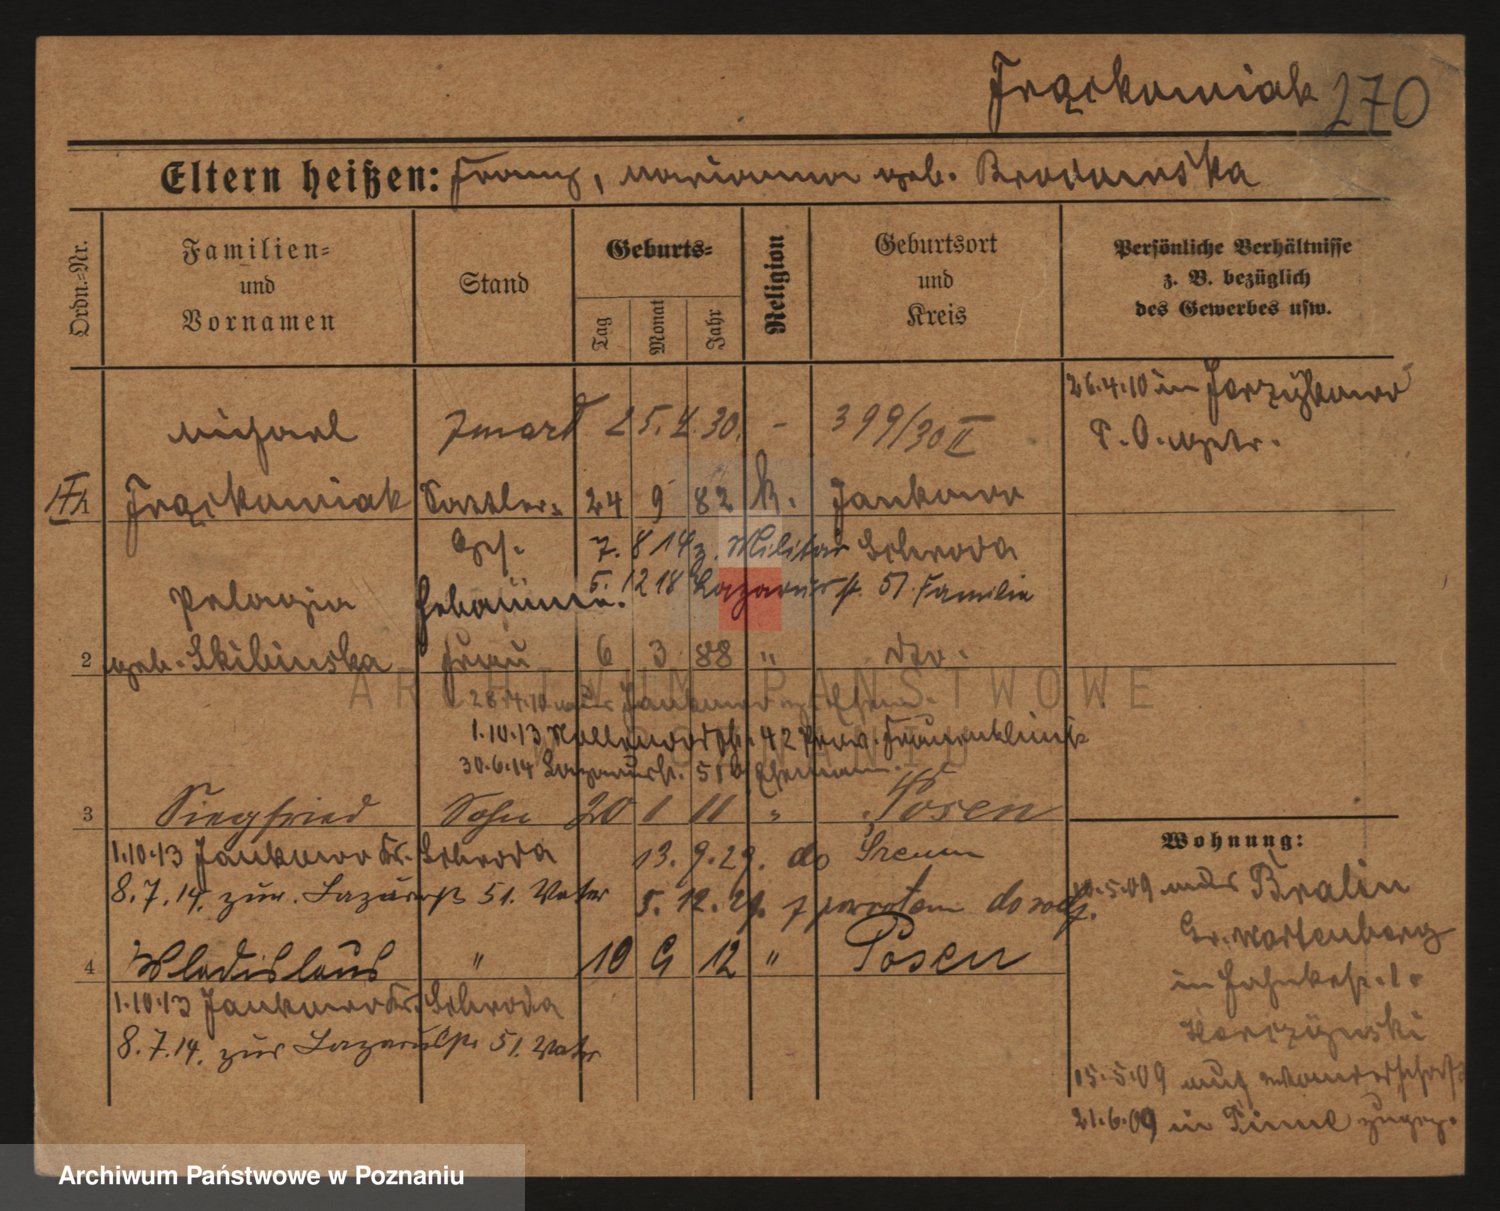 Frąckowiak 270
Eltern heißen: Franz, Marianna geb. Brodowska
Ordn.-Nr.
Familien-
und
Vornamen
Stand
Geburts-
Tag
Monat
Jahr
Religion
Geburtsort
und
Kreis
Persönliche Verhältnisse
z. B. bezüglich
des Gewerbes usw.
26.4.10 in
Michael zmarł 25.4.30. - 399/30 II
Frąckowiak Sattler- 24 9 82 k. Jankowo
Ges. 7. 8 14 z. Militär Schroda
5. 12 18 Lazarusstr. 51. Familie
Pelagia Hebamme.
2 geb. Skibinska Frau 6 3 88 " dto.
28.4.10 aus Jankowo
1.10.13 42 Prov. Frauenklinik
30.6.14 Lazarusstr. 51 Ehemann.
3 Siegfried Sohn 20 1 11 " Posen
1.10.13 Jankowo Kr. Schroda 13. 9. 29. do Śrem
8.7.14. zur. Lazarusstr 51. Vater 5. 12. 29. z powrotem do
4 Wladislaus " 10 9 12 " Posen
1.10.13 Jankowo Kr. Schroda
8.7.14. zur Lazarusstr 51. Vater
Wohnung:
10.5.09 aus Bralin
Gr. Wartenberg
in
15.5.09 auf Wanderschaft
21.6.09 in zugez.
ARCHIWUM PAŃSTWOWE
W POZNANIU
Archiwum Państwowe w Poznaniu